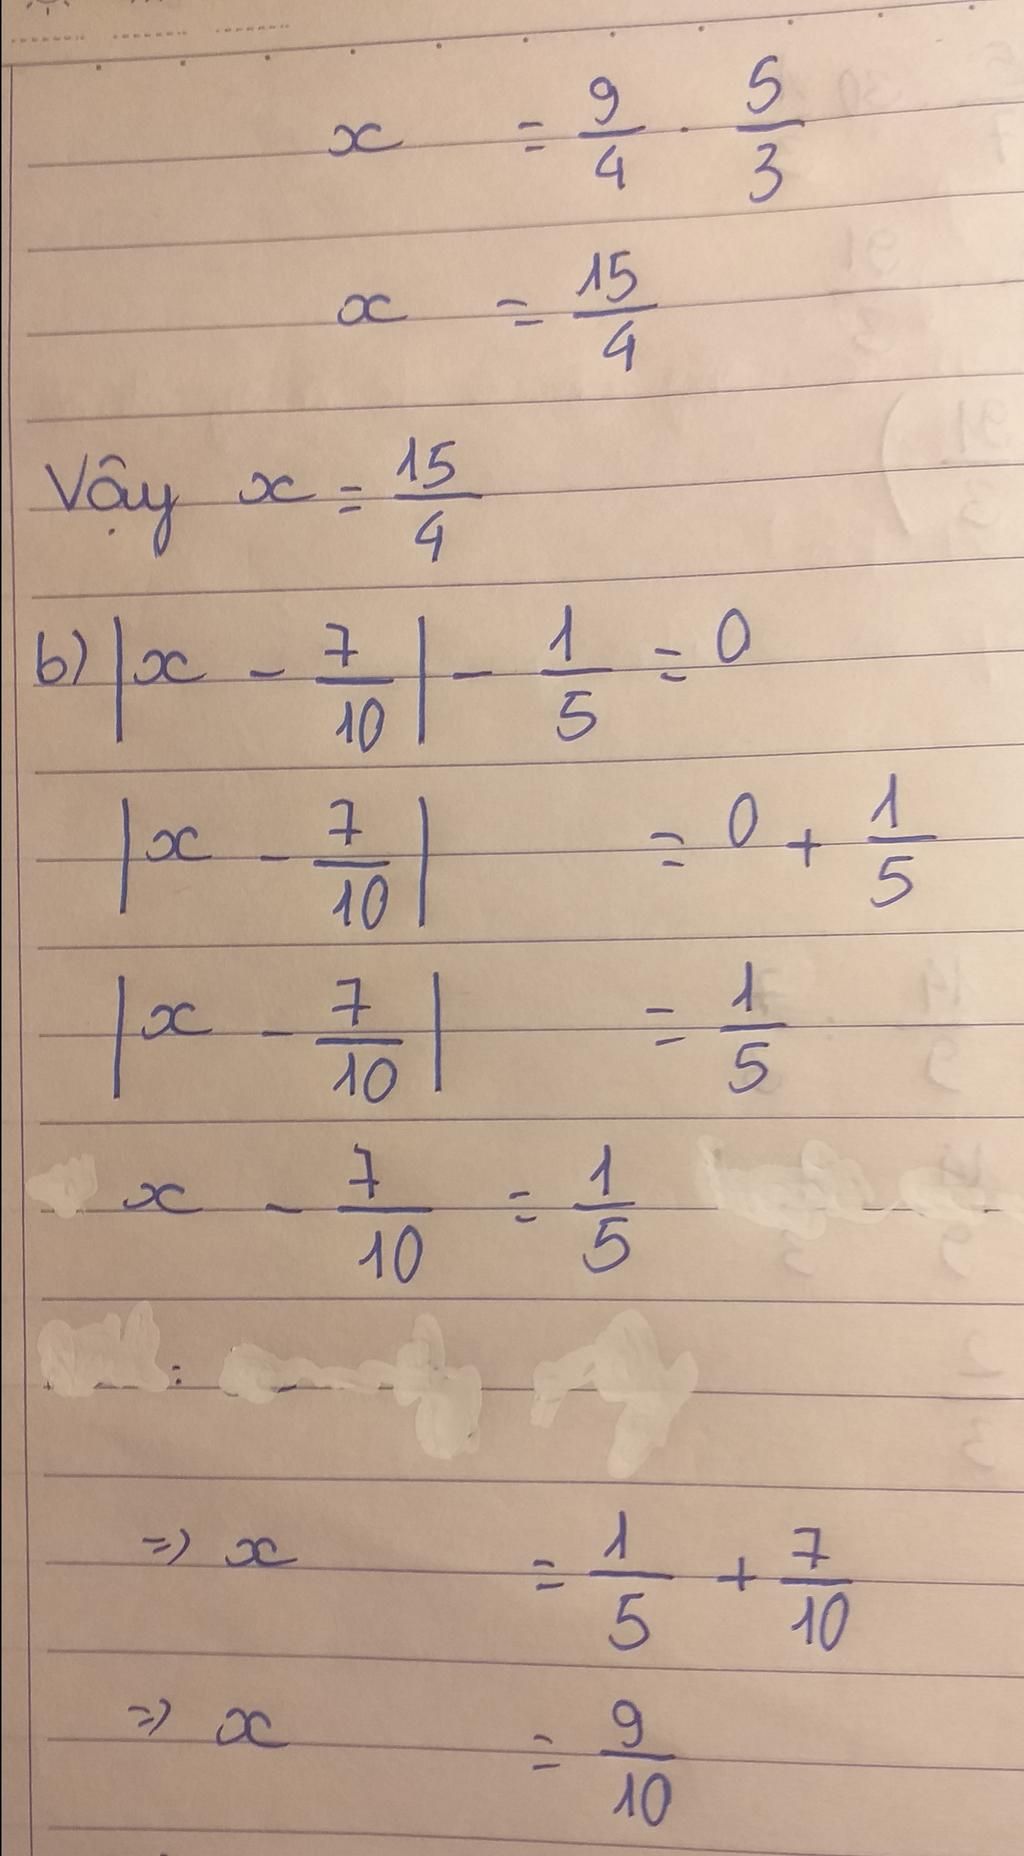 x = 9/4 . 5/3
x = 15/4
Vậy x = 15/4
b) |x - 7/10| - 1/5 = 0
|x - 7/10| = 0 + 1/5
|x - 7/10| = 1/5
x - 7/10 = 1/5
=> x = 1/5 + 7/10
=> x = 9/10